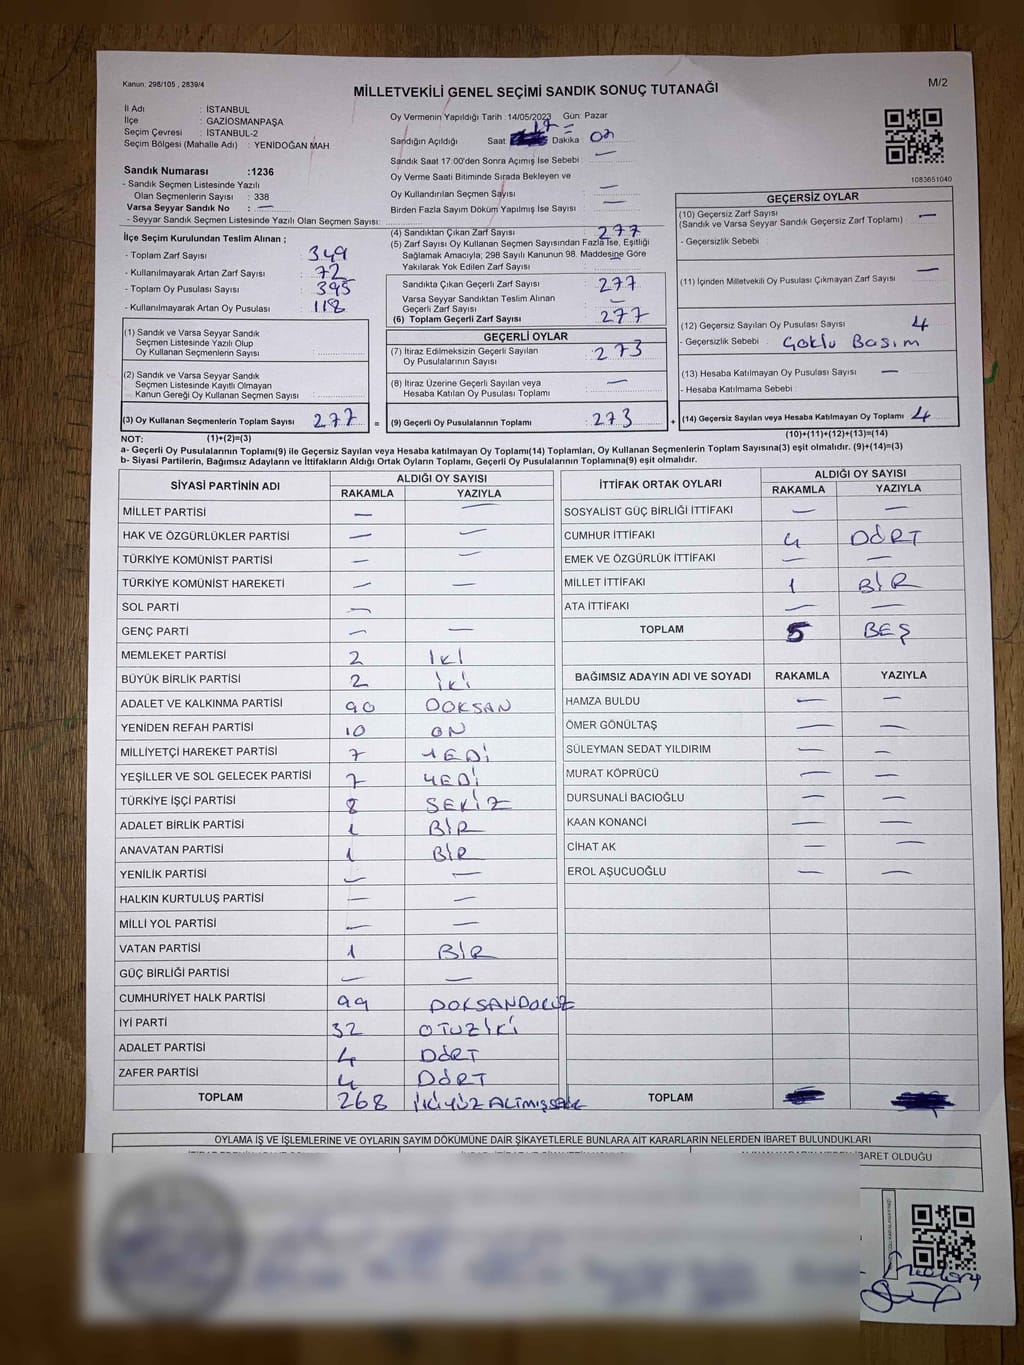 Kanun: 298/105 , 2839/4
MİLLETVEKİLİ GENEL SEÇİMİ SANDIK SONUÇ TUTANAĞI
M/2
İl Adı : İSTANBUL
İlçe : GAZİOSMANPAŞA
Seçim Çevresi : İSTANBUL-2
Seçim Bölgesi (Mahalle Adı) : YENİDOĞAN MAH.
Oy Vermenin Yapıldığı Tarih : 14/05/2023 Gün: Pazar
Sandığın Açıldığı Saat 17 Dakika :
Sandık Saat 17:00'den Sonra Açımış İse Sebebi : —
Oy Verme Saati Bitiminde Sırada Bekleyen ve
Oy Kullandırılan Seçmen Sayısı : —
Birden Fazla Sayım Döküm Yapılmış İse Sayısı : —
1083651040
Sandık Numarası :1236
- Sandık Seçmen Listesinde Yazılı
Olan Seçmenlerin Sayısı : 338
Varsa Seyyar Sandık No : —
- Seyyar Sandık Seçmen Listesinde Yazılı Olan Seçmen Sayısı:
İlçe Seçim Kurulundan Teslim Alınan ;
- Toplam Zarf Sayısı : 349
- Kullanılmayarak Artan Zarf Sayısı : 72
- Toplam Oy Pusulası Sayısı : 395
- Kullanılmayarak Artan Oy Pusulası : 118
(1) Sandık ve Varsa Seyyar Sandık
Seçmen Listesinde Yazılı Olup
Oy Kullanan Seçmenlerin Sayısı :
(2) Sandık ve Varsa Seyyar Sandık
Seçmen Listesinde Kayıtlı Olmayan
Kanun Gereği Oy Kullanan Seçmen Sayısı :
(3) Oy Kullanan Seçmenlerin Toplam Sayısı : 277 =
(4) Sandıktan Çıkan Zarf Sayısı : 277
(5) Zarf Sayısı Oy Kullanan Seçmen Sayısından Fazla İse, Eşitliği
Sağlamak Amacıyla; 298 Sayılı Kanunun 98. Maddesine Göre
Yakılarak Yok Edilen Zarf Sayısı : —
Sandıkta Çıkan Geçerli Zarf Sayısı : 277
Varsa Seyyar Sandıktan Teslim Alınan
Geçerli Zarf Sayısı : —
(6) Toplam Geçerli Zarf Sayısı : 277
GEÇERLİ OYLAR
(7) İtiraz Edilmeksizin Geçerli Sayılan
Oy Pusulalarının Sayısı : 273
(8) İtiraz Üzerine Geçerli Sayılan veya
Hesaba Katılan Oy Pusulası Toplamı : —
(9) Geçerli Oy Pusulalarının Toplamı : 273 +
GEÇERSİZ OYLAR
(10) Geçersiz Zarf Sayısı
(Sandık ve Varsa Seyyar Sandık Geçersiz Zarf Toplamı) : —
- Geçersizlik Sebebi :
(11) İçinden Milletvekili Oy Pusulası Çıkmayan Zarf Sayısı : —
(12) Geçersiz Sayılan Oy Pusulası Sayısı : 4
- Geçersizlik Sebebi : Çoklu Basım
(13) Hesaba Katılmayan Oy Pusulası Sayısı : —
- Hesaba Katılmama Sebebi :
(14) Geçersiz Sayılan veya Hesaba Katılmayan Oy Toplamı : 4
NOT: (1)+(2)=(3)
(10)+(11)+(12)+(13)=(14)
a- Geçerli Oy Pusulalarının Toplamı(9) ile Geçersiz Sayılan veya Hesaba katılmayan Oy Toplamı(14) Toplamları, Oy Kullanan Seçmenlerin Toplam Sayısına(3) eşit olmalıdır. (9)+(14)=(3)
b- Siyasi Partilerin, Bağımsız Adayların ve İttifakların Aldığı Ortak Oyların Toplamı, Geçerli Oy Pusulalarının Toplamına(9) eşit olmalıdır.
SİYASİ PARTİNİN ADI ALDIĞI OY SAYISI
RAKAMLA YAZIYLA
MİLLET PARTİSİ — —
HAK VE ÖZGÜRLÜKLER PARTİSİ — —
TÜRKİYE KOMÜNİST PARTİSİ — —
TÜRKİYE KOMÜNİST HAREKETİ — —
SOL PARTİ —
GENÇ PARTİ — —
MEMLEKET PARTİSİ 2 İKİ
BÜYÜK BİRLİK PARTİSİ 2 İKİ
ADALET VE KALKINMA PARTİSİ 90 DOKSAN
YENİDEN REFAH PARTİSİ 10 ON
MİLLİYETÇİ HAREKET PARTİSİ 7 YEDİ
YEŞİLLER VE SOL GELECEK PARTİSİ 7 YEDİ
TÜRKİYE İŞÇİ PARTİSİ 8 SEKİZ
ADALET BİRLİK PARTİSİ 1 BİR
ANAVATAN PARTİSİ 1 BİR
YENİLİK PARTİSİ — —
HALKIN KURTULUŞ PARTİSİ — —
MİLLİ YOL PARTİSİ — —
VATAN PARTİSİ 1 BİR
GÜÇ BİRLİĞİ PARTİSİ — —
CUMHURİYET HALK PARTİSİ 99 DOKSANDOKUZ
İYİ PARTİ 32 OTUZİKİ
ADALET PARTİSİ 4 DÖRT
ZAFER PARTİSİ 4 DÖRT
TOPLAM 268
İTTİFAK ORTAK OYLARI ALDIĞI OY SAYISI
RAKAMLA YAZIYLA
SOSYALİST GÜÇ BİRLİĞİ İTTİFAKI — —
CUMHUR İTTİFAKI 4 DÖRT
EMEK VE ÖZGÜRLÜK İTTİFAKI — —
MİLLET İTTİFAKI 1 BİR
ATA İTTİFAKI — —
TOPLAM 5 BEŞ
BAĞIMSIZ ADAYIN ADI VE SOYADI RAKAMLA YAZIYLA
HAMZA BULDU — —
ÖMER GÖNÜLTAŞ — —
SÜLEYMAN SEDAT YILDIRIM — —
MURAT KÖPRÜCÜ — —
DURSUNALİ BACIOĞLU — —
KAAN KONANCİ — —
CİHAT AK — —
EROL AŞUCUOĞLU — —
TOPLAM
OYLAMA İŞ VE İŞLEMLERİNE VE OYLARIN SAYIM DÖKÜMÜNE DAİR ŞİKAYETLERLE BUNLARA AİT KARARLARIN NELERDEN İBARET BULUNDUKLARI
İBARET OLDUĞU